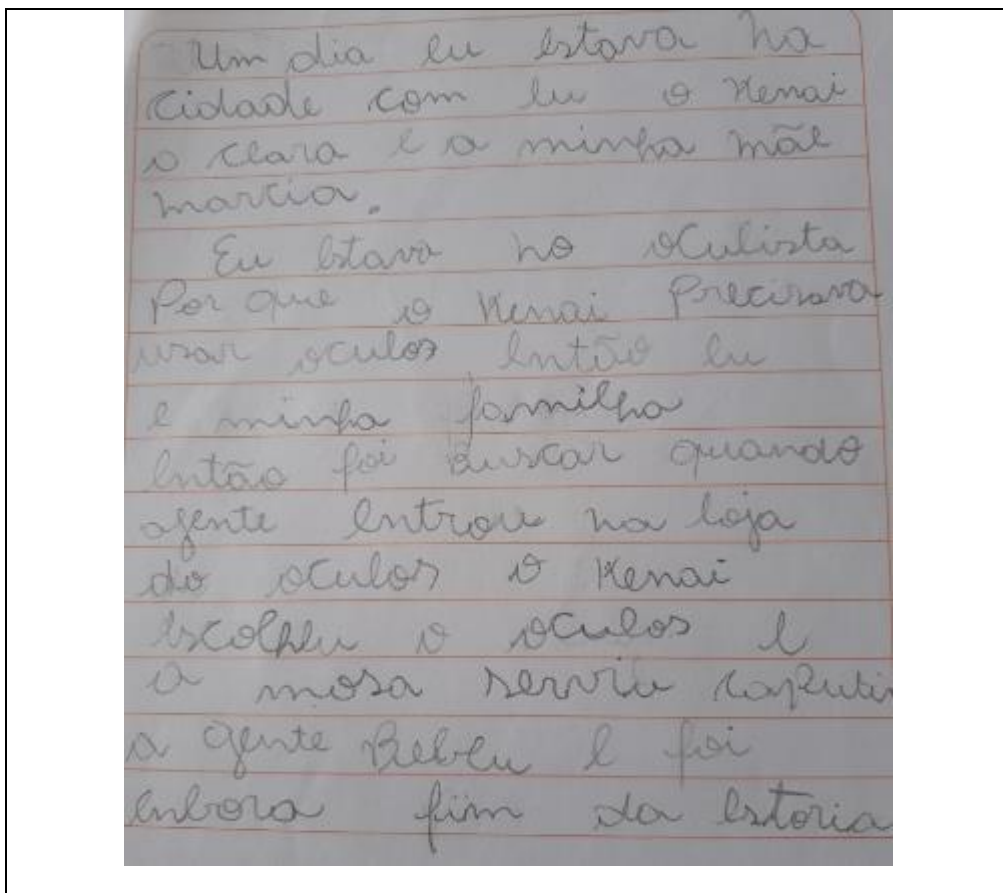 Um dia eu estava na
cidade com eu o Kenai
a clara e a minha mãe
marcia.
Eu estava no oculista
Por que o Kenai Precisava
usar oculos então eu
e minha familha
então foi Buscar quando
agente entrou na loja
do oculos o Kenai
escolheu o oculos e
a mosa serviu caputi
a gente Bebeu e foi
enbora fim da estoria